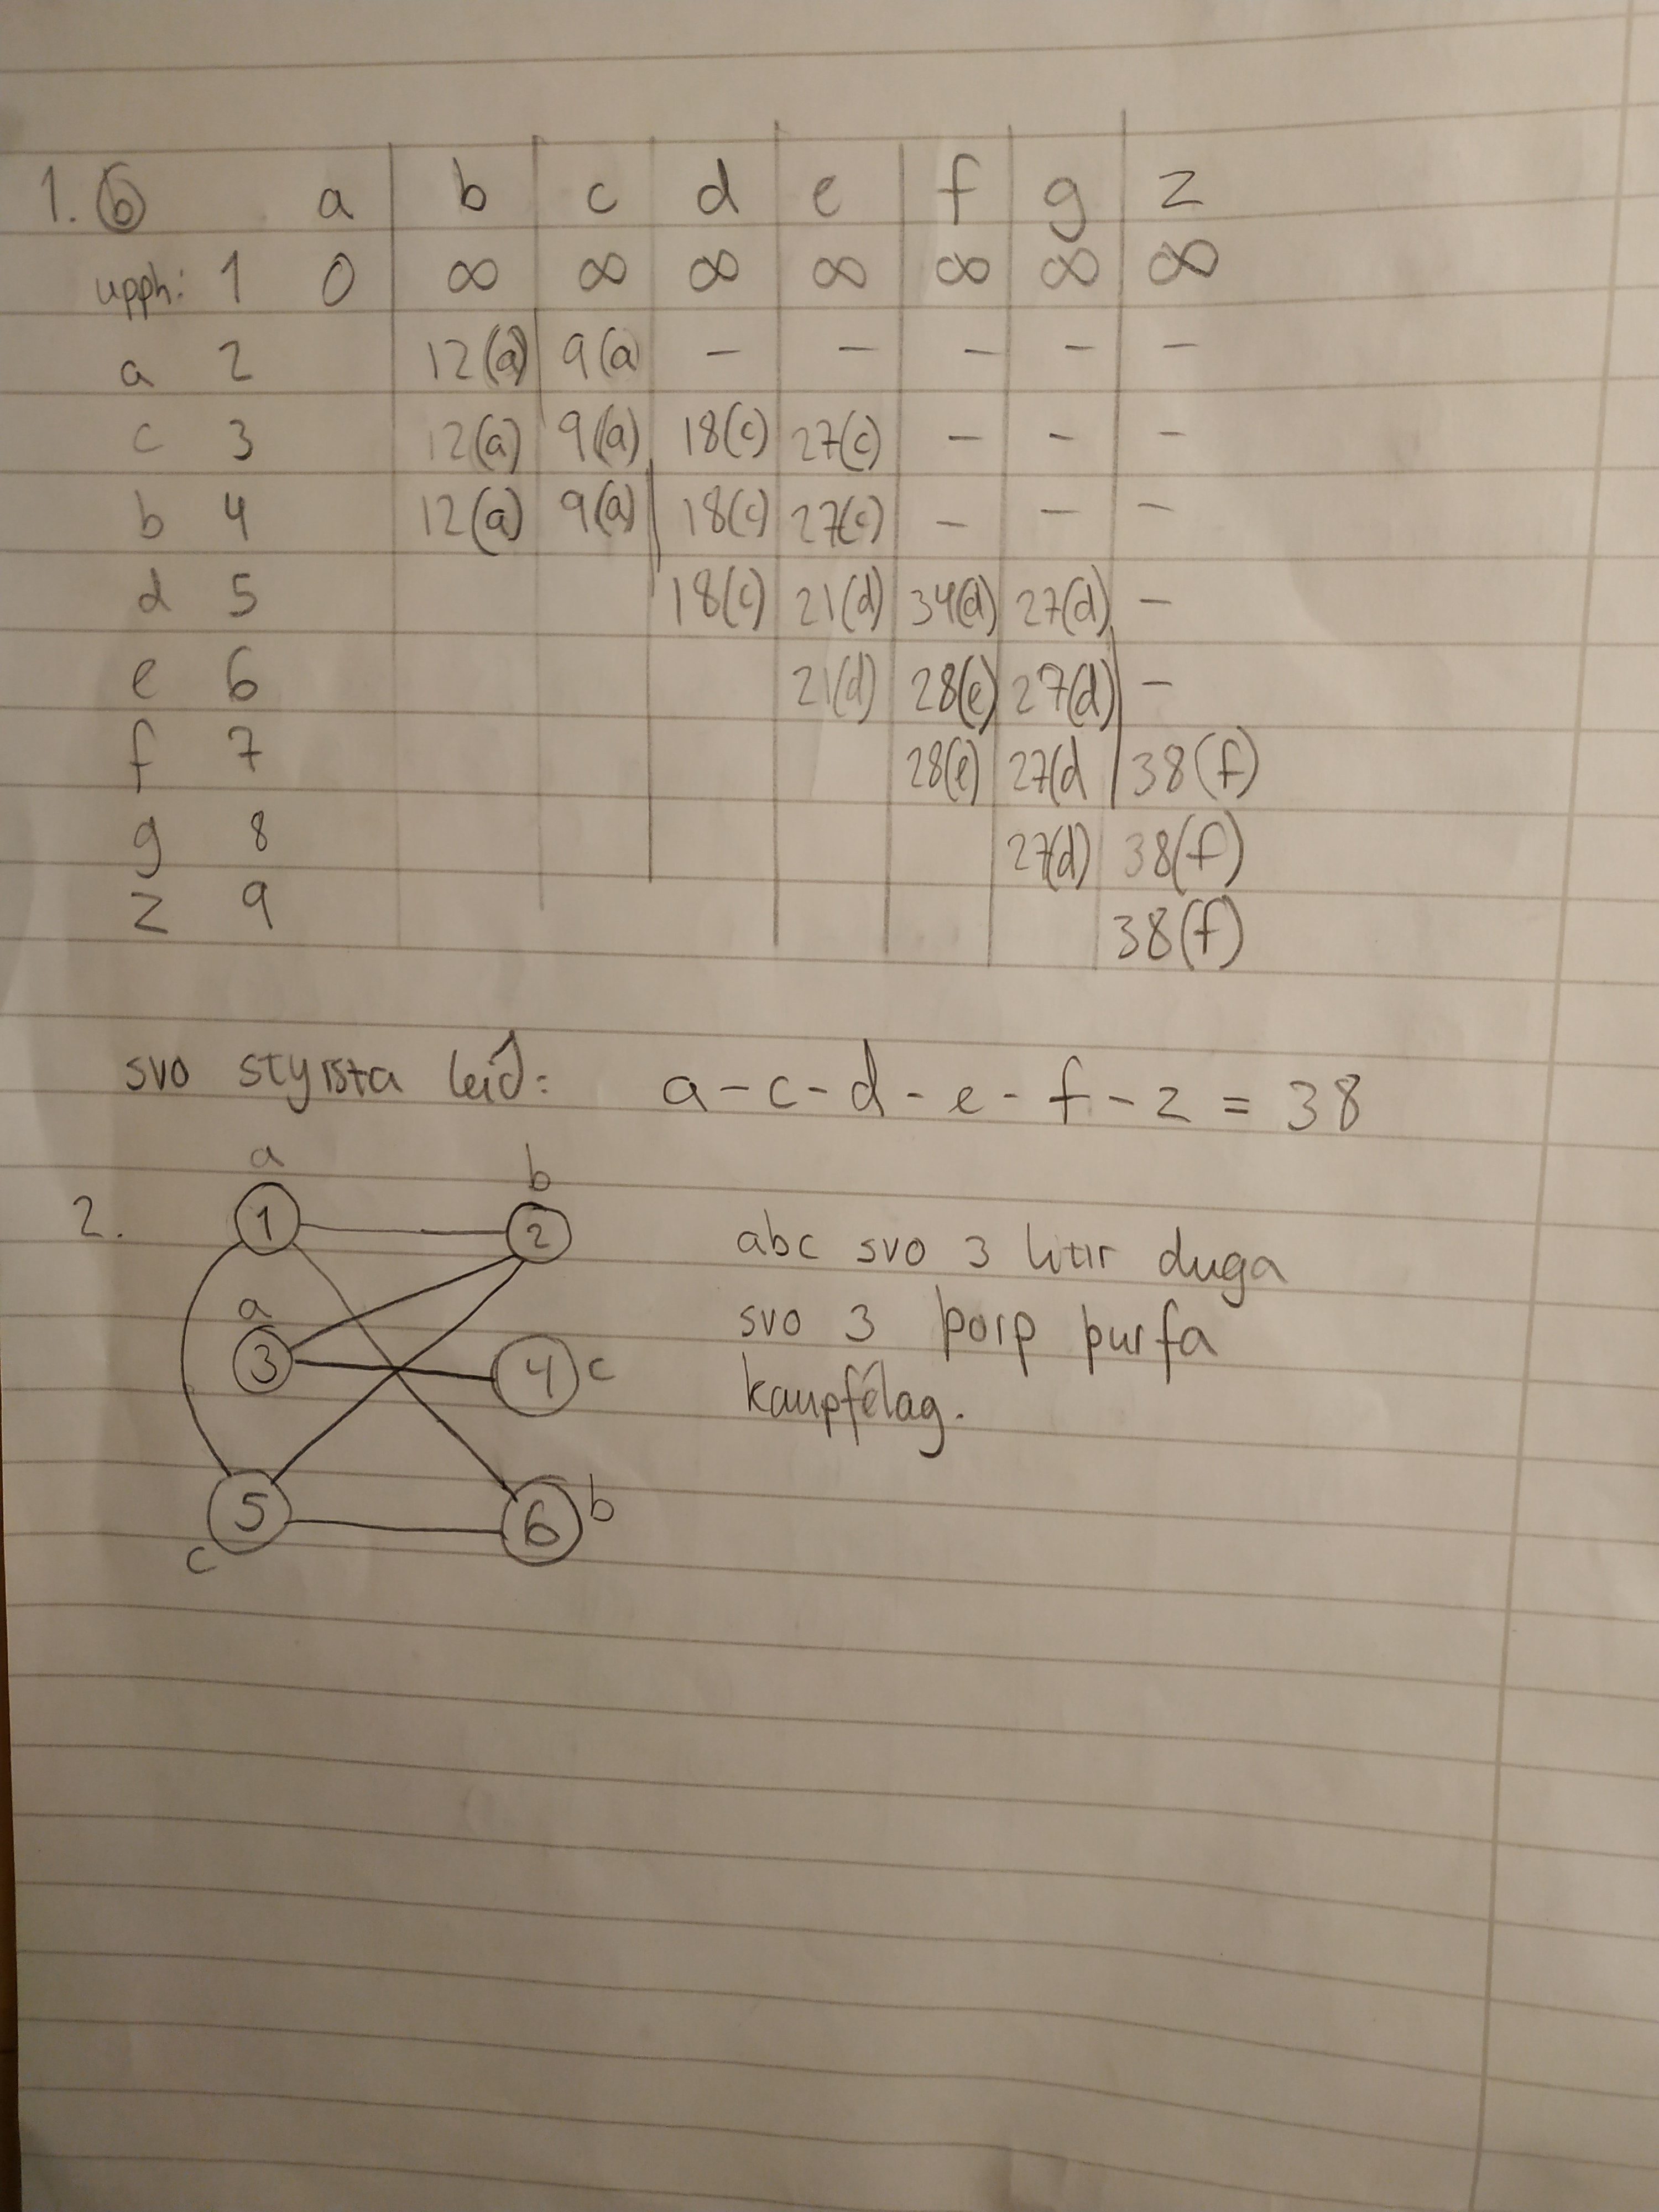 1. (b) a b c d e f g z
upph: 1 0 ∞ ∞ ∞ ∞ ∞ ∞ ∞
a 2 12(a) 9(a) - - - - -
c 3 12(a) 9(a) 18(c) 27(c) - - -
b 4 12(a) 9(a) 18(c) 27(c) - - -
d 5 18(c) 21(d) 34(d) 27(d) -
e 6 21(d) 28(e) 27(d) -
f 7 28(e) 27(d 38(f)
g 8 27(d) 38(f)
z 9 38(f)
svo styrsta leið: a-c-d-e-f-z = 38
2. a b
1 2
abc svo 3 litir duga
a
3 4 c
svo 3 þorp þurfa
kaupfélag.
5 6 b
c